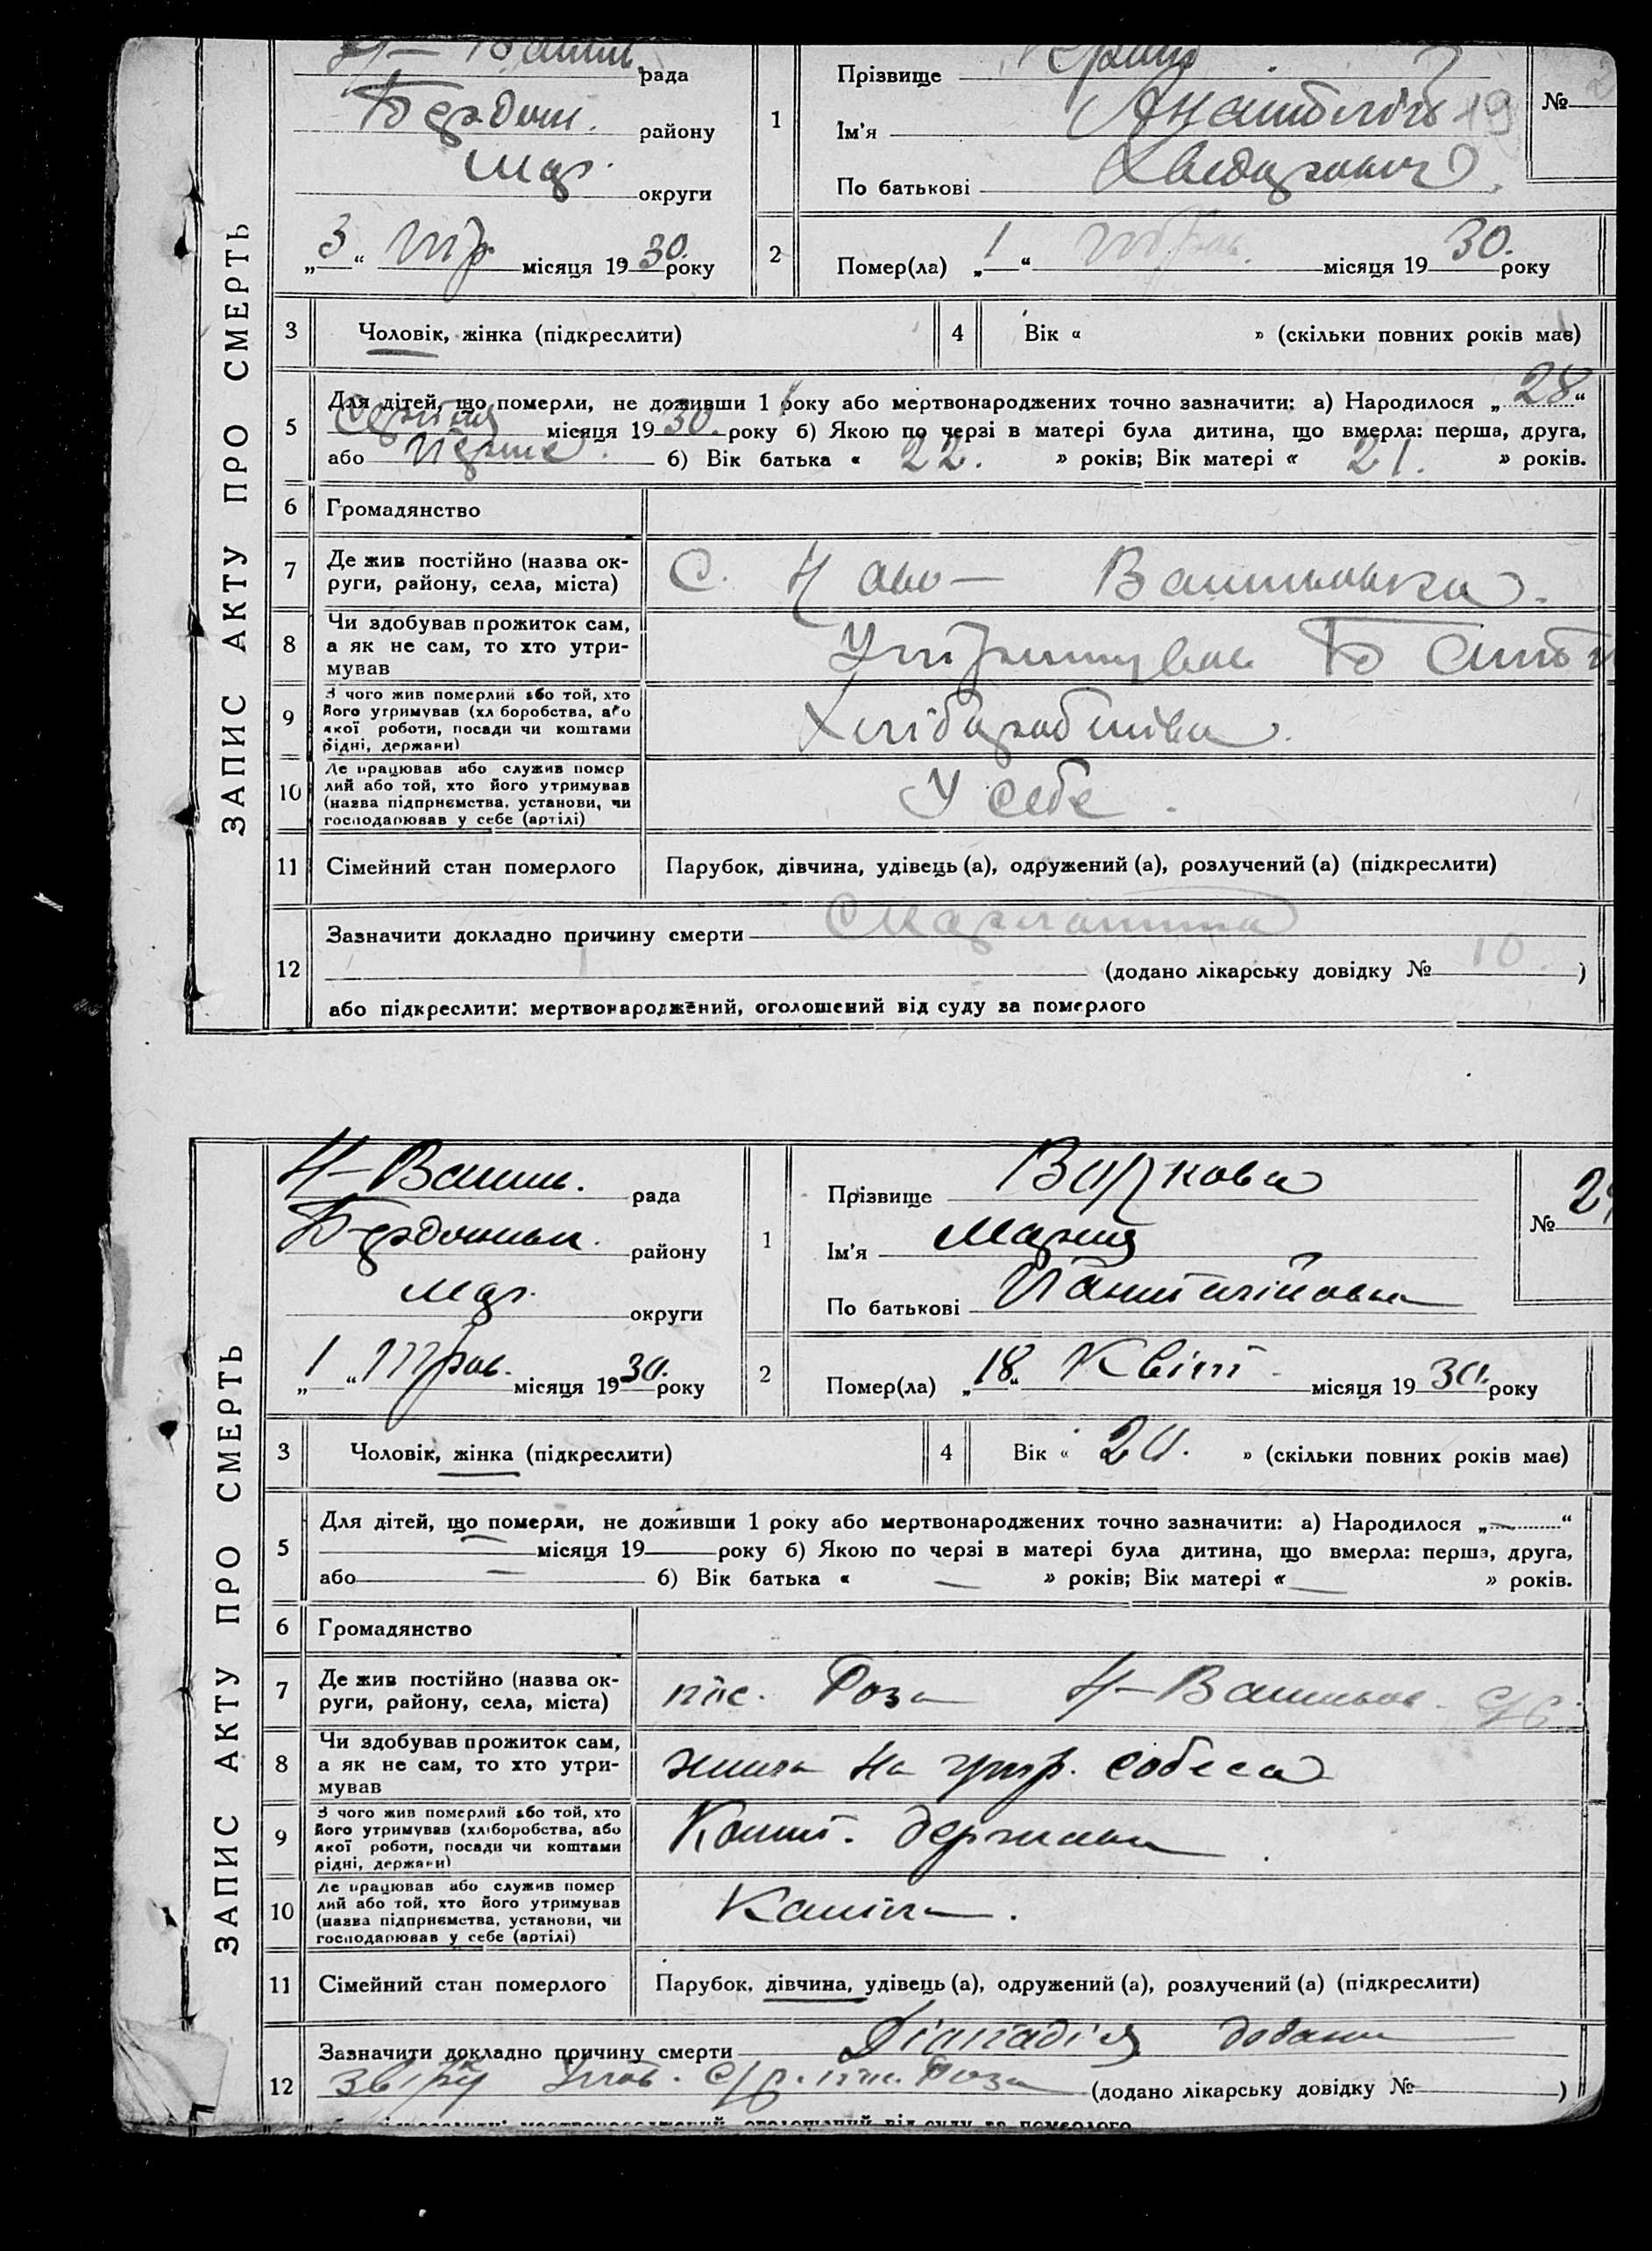 ЗАПИС АКТУ ПРО СМЕРТЬ
рада
Бердян. району
Мар. округи
„3“ тр. місяця 1930. року
1
Прізвище
Ім'я Анатолій 19
По батькові Хведарович
№
2
Помер(ла) „1“ трав. місяця 1930. року
3 Чоловік, жінка (підкреслити)
4 Вік « » (скільки повних років має)
5 Для дітей, що померли, не доживши 1 року або мертвонароджених точно зазначити: а) Народилося „28“
місяця 1930. року б) Якою по черзі в матері була дитина, що вмерла: перша, друга,
або Перше. б) Вік батька « 22. » років; Вік матері « 21. » років.
6 Громадянство
7 Де жив постійно (назва ок-
руги, району, села, міста)
С. Ново- Васильовка.
8 Чи здобував прожиток сам,
а як не сам, то хто утри-
мував
Утримував Батько
9 З чого жив померлий або той, хто
його утримував (хліборобства, або
якої роботи, посади чи коштами
рідні, держави)
10 Де працював або служив помер
лий або той, хто його утримував
(назва підприємства, установи, чи
господарював у себе (артілі)
У себе.
11 Сімейний стан померлого
Парубок, дівчина, удівець (а), одружений (а), розлучений (а) (підкреслити)
12 Зазначити докладно причину смерти Скарлатина
(додано лікарську довідку № 10.)
або підкреслити: мертвонароджений, оголошений від суду за померлого
ЗАПИС АКТУ ПРО СМЕРТЬ
Н-Василь. рада
Бердянськ. району
Мар. округи
„1“ Трав. місяця 1930. року
1
Прізвище
Ім'я Мария
По батькові Панталійовна
№
2
Помер(ла) „18“ Квіт. місяця 1930. року
3 Чоловік, жінка (підкреслити)
4 Вік « 20. » (скільки повних років має)
5 Для дітей, що померли, не доживши 1 року або мертвонароджених точно зазначити: а) Народилося „—“
місяця 19 року б) Якою по черзі в матері була дитина, що вмерла: перша, друга,
або — б) Вік батька « — » років; Вік матері « — » років.
6 Громадянство
7 Де жив постійно (назва ок-
руги, району, села, міста)
пос. Роза Н-Васильов. с/р.
8 Чи здобував прожиток сам,
а як не сам, то хто утри-
мував
жила на утр. собеса
9 З чого жив померлий або той, хто
його утримував (хліборобства, або
якої роботи, посади чи коштами
рідні, держави)
Кошт. держави.
10 Де працював або служив помер
лий або той, хто його утримував
(назва підприємства, установи, чи
господарював у себе (артілі)
Каліка.
11 Сімейний стан померлого
Парубок, дівчина, удівець (а), одружений (а), розлучений (а) (підкреслити)
12 Зазначити докладно причину смерти
с/р. пос. Роза (додано лікарську довідку № )